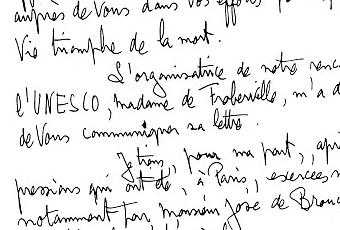 auprès de Vous dans vos efforts pour q
Vie triomphe de la mort.
L'organisatrice de notre renc
l'UNESCO, madame de Froberville, m'a d
de Vous communiquer sa lettre.
Je tiens, pour ma part, , apr
pressions qui ont été, à Paris, exercées
notamment par, monsieur José de Brouc